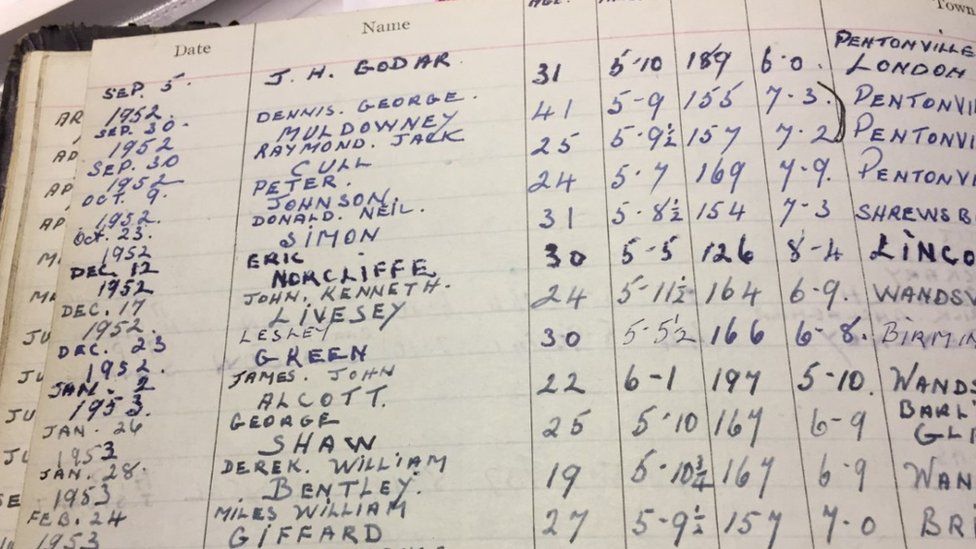 Date Name AGE. Town
SEP. 5 1952. J. H. GODAR. 31 5-10 189 6-0. PENTONVILLE LONDON
SEP. 30. 1952 DENNIS. GEORGE. MULDOWNEY 41 5-9 155 7-3. PENTONVI
SEP. 30 1952 RAYMOND. JACK CULL 25 5-9½ 157 7-2 PENTONVI
OCT. 9. 1952. PETER. JOHNSON 24 5-7 169 7-9. PENTONV
OCT. 23. 1952 DONALD. NEIL. SIMON 31 5-8½ 154 7-3 SHREWSB
DEC. 12 1952 ERIC NORCLIFFE 30 5-5 126 8-4 LINCO
DEC. 17 1952. JOHN. KENNETH. LIVESEY 24 5-11½ 164 6-9. WANDS
DEC. 23 1952. LESLEY GREEN 30 5-5½ 166 6-8. BIRMIN
JAN. 2 1953. JAMES. JOHN ALCOTT. 22 6-1 197 5-10. WANDS
JAN. 26 1953 GEORGE SHAW 25 5-10 167 6-9 BARL GL
JAN. 28. 1953 DEREK. WILLIAM BENTLEY. 19 5-10¾ 167 6-9 WAN
FEB. 24 1953 MILES WILLIAM GIFFARD 27 5-9½ 157 7-0 BR